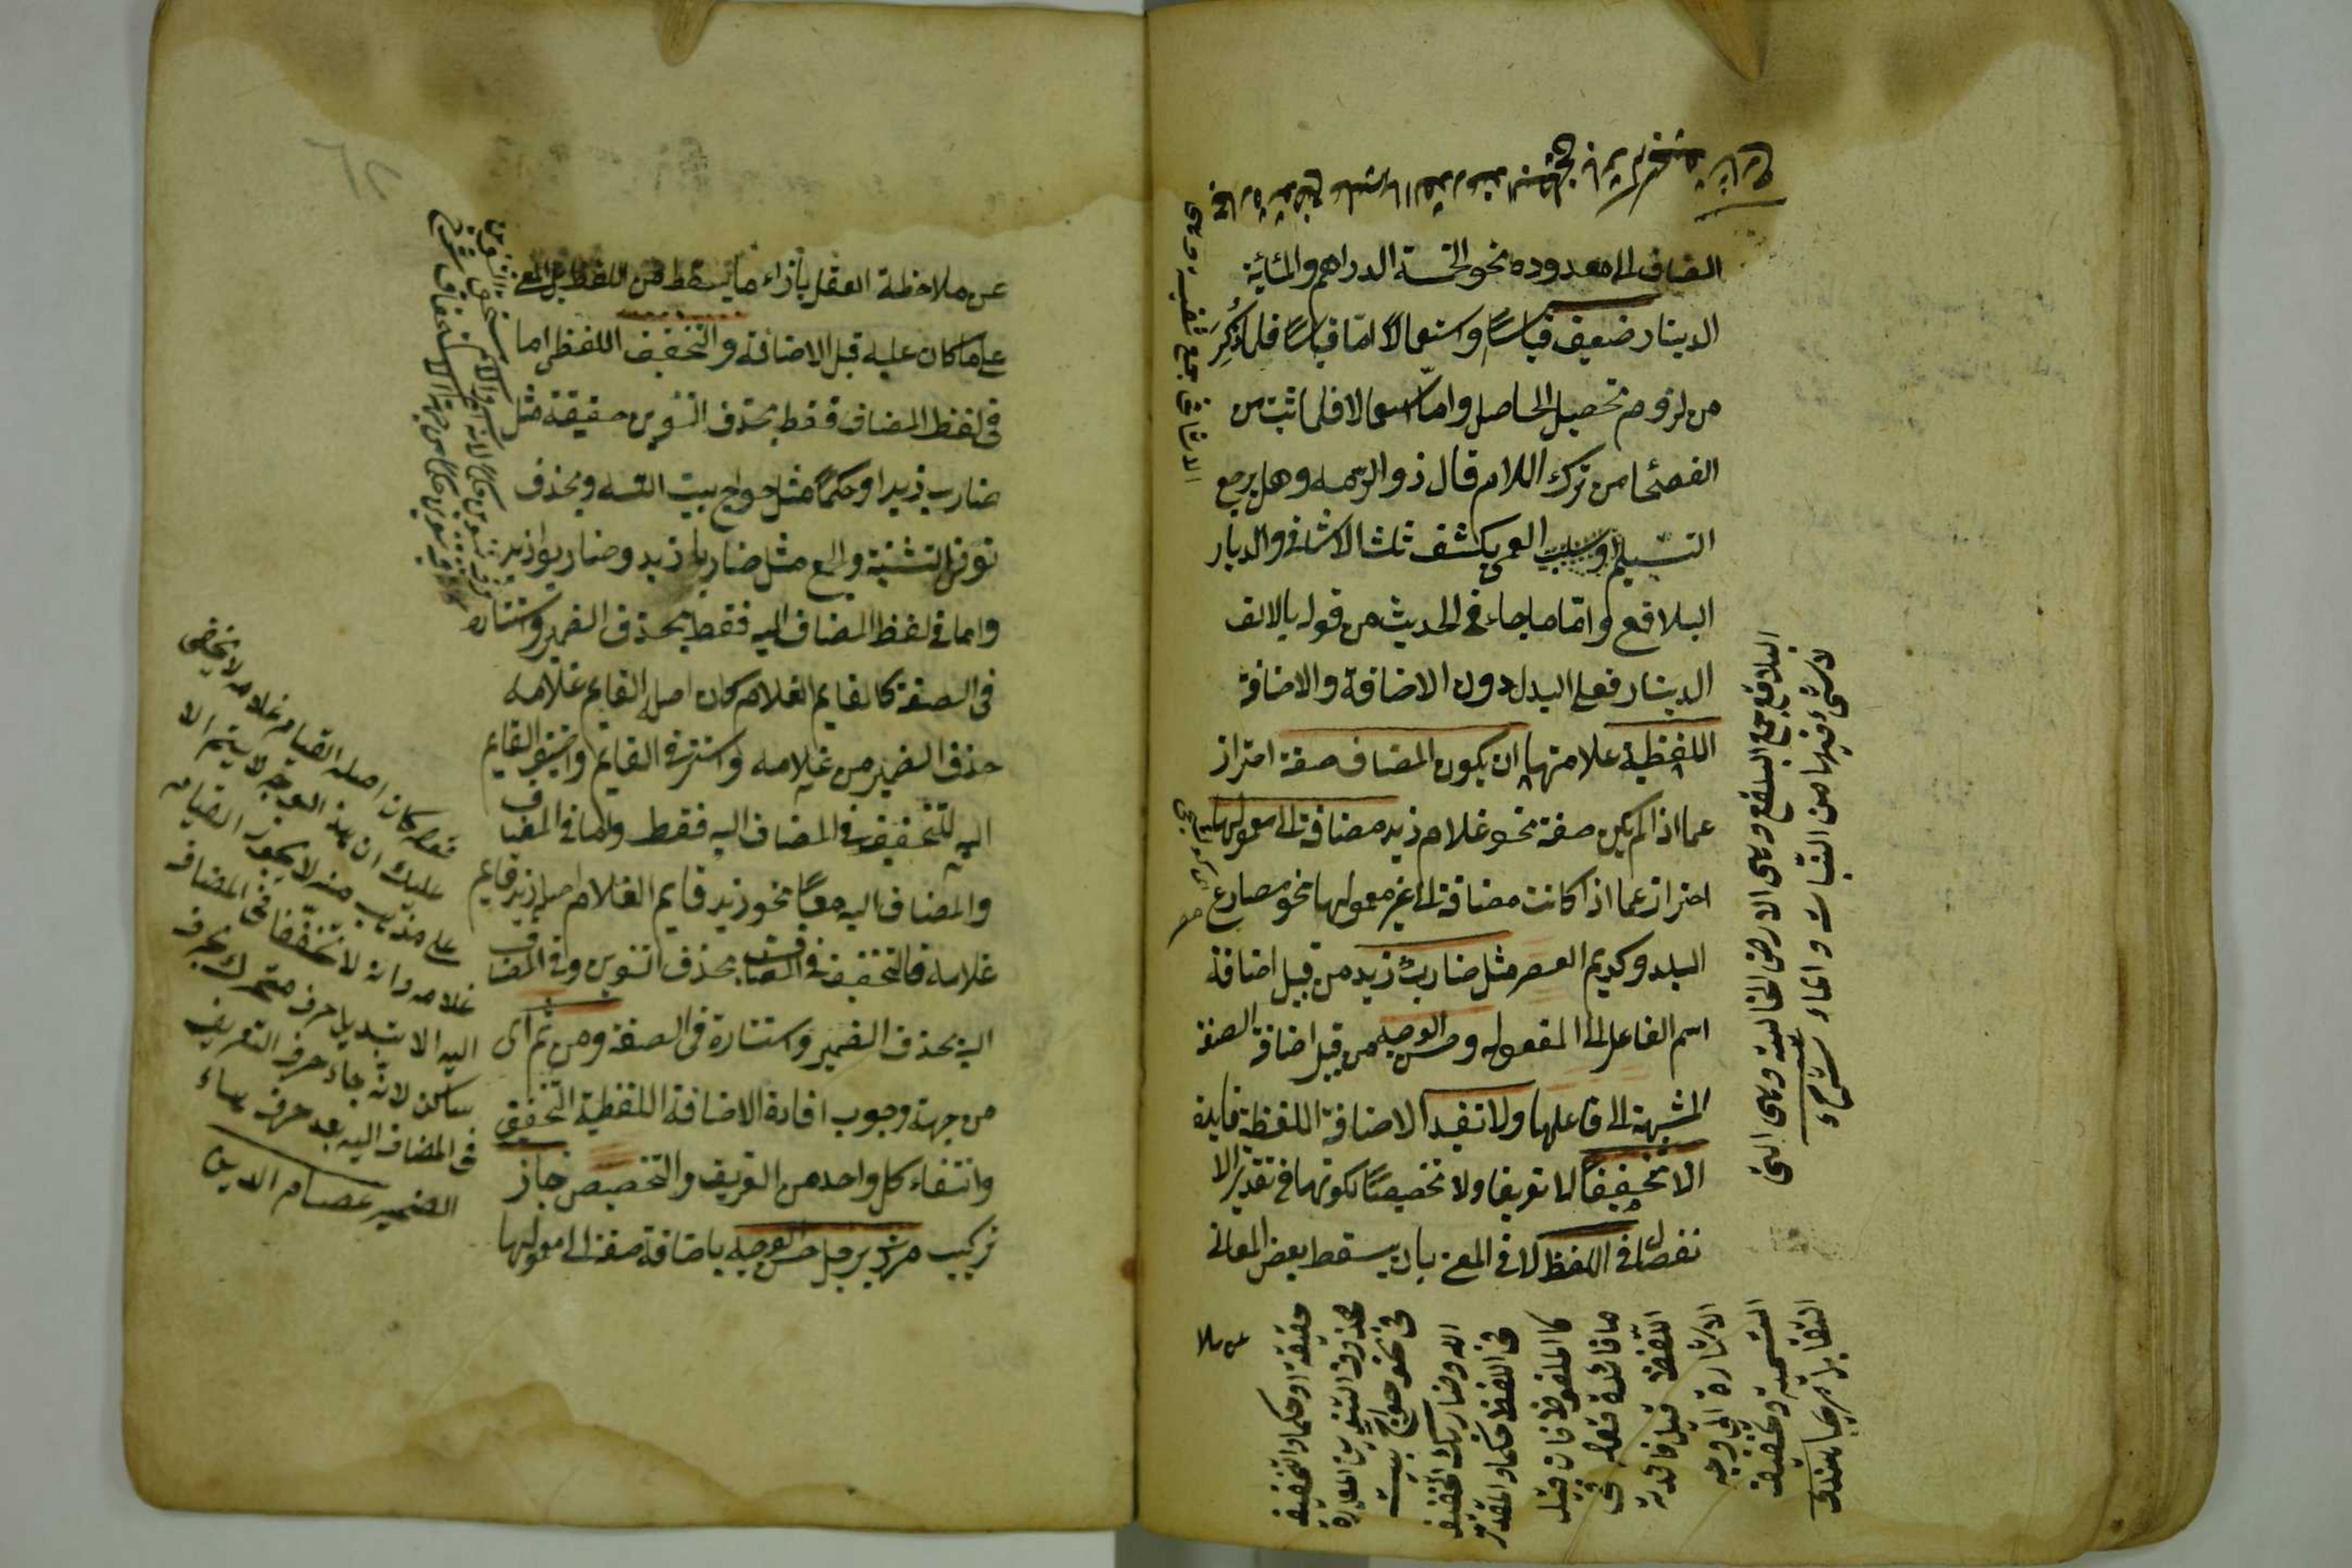 المضاف الى معدوده نحو الخمسة الدراهم والمائة
الدينار ضعيف قياسًا واستعمالا امّا قياسًا فلما ذُكِرَ
من لزوم تحصيل الحاصل وامّا استعمالا فلما ثبت من
الفصحا من ترك اللام قال ذو الرمه وهل يرجع
التسليم او يكشف العمى ثلث الاثافى والديار
البلاقع وامّا ما جاء فى الحديث من قوله بالالف
الدينار فعلى البدل دون الاضافة والاضافة
اللفظية علامتها ان يكون المضاف صفة احتراز
عما اذا لم يكن صفة نحو غلام زيد مضافة الى معمولها
احتراز عما اذا كانت مضافة الى غير معمولها نحو مصارع
البلد وكريم العصر مثل ضارب زيد من قبيل اضافة
اسم الفاعل الى المفعول وحسن الوجه من قبيل اضافة الصفة
المشبهة الى فاعلها ولا تفيد الاضافة اللفظية فايدة
الا تخفيفا لا تعريفا ولا تخصيصًا لكونها فى تقدير الا
نفصال فى اللفظ لا فى المعنى بان يسقط بعض المعانى
البلاقع جمع البلقع وهى الارض الخالية وهى التى
لا شئ فيها من النبات والماء
التقابل
التسمية وتخفيف
الاشارة الى وجه
اللفظ قيل فائدته
ما فائدة فقط فى
كالملفوظ فان قيل
فى اللفظ حكما والمقدر
الله وضاربك التخفيف
فى نحو حواج بيت
محذوف التنوين المقدرة
حقيقة او حكما والتخفيف
عن ملا
عن ملاحظة العقل بازاء ما يسقط من اللفظ بل المعنى
على ما كان عليه قبل الاضافة والتخفيف اللفظى اما
فى لفظ المضاف فقط بحذف التنوين حقيقة مثل
ضارب زيد او حكمًا مثل حواج بيت الله وبحذف
نونى التثنية والجمع مثل ضاربا زيد وضاربوا زيد
واما فى لفظ المضاف اليه فقط بحذف الضمير واستتاره
فى الصفة كالقايم الغلام كان اصله القايم غلامه
حذف الضمير من غلامه واستتر فى القايم واضيف القايم
اليه للتخفيف فى المضاف اليه فقط واما فى المضاف
والمضاف اليه معًا نحو زيد قايم الغلام اصله زيد قايم
غلامه فالتخفيف فى المضاف بحذف التنوين وفى المضاف
اليه بحذف الضمير واستتاره فى الصفة ومن ثم اى
من جهة وجوب افادة الاضافة اللفظية التخفيف
وانتفاء كل واحد من التعريف والتخصيص جاز
تركيب مررت برجل حسن الوجه باضافة صفة الى معمولها
قوله كان اصله القايم غلامه لا يخفى
عليك ان هذا الوجه لا يتم الا
على مذهب من لا يجوز القيام
غلامه وانه لا تخفيفا فى المضاف
اليه الا بتبديل حرف متحرك بحرف
ساكن لانه جاء حرف التعريف
فى المضاف اليه بعد حرف هاء
الضمير عصام الدين